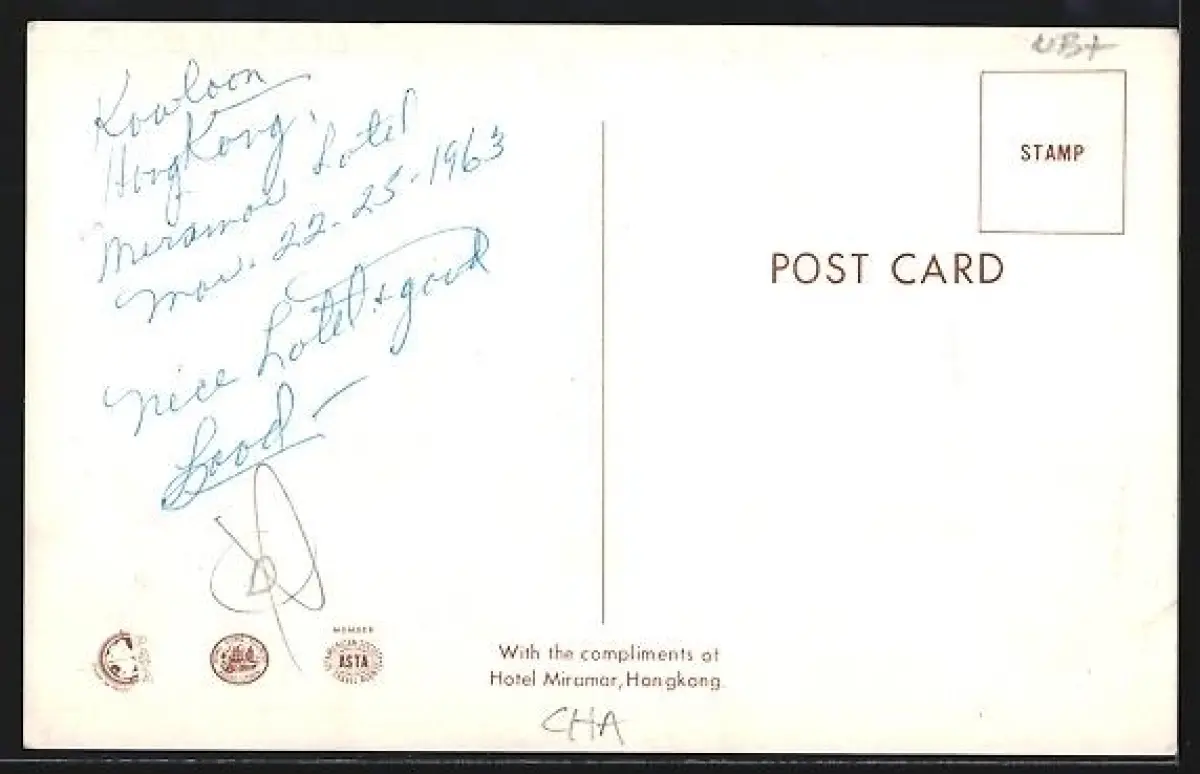 Kowloon
HongKong.
Miramar Hotel
Nov. 22-25-1963
nice hotel & good
food -
STAMP
POST CARD
MEMBER
ASTA
With the compliments of
Hotel Miramar, Hongkong.
CHA